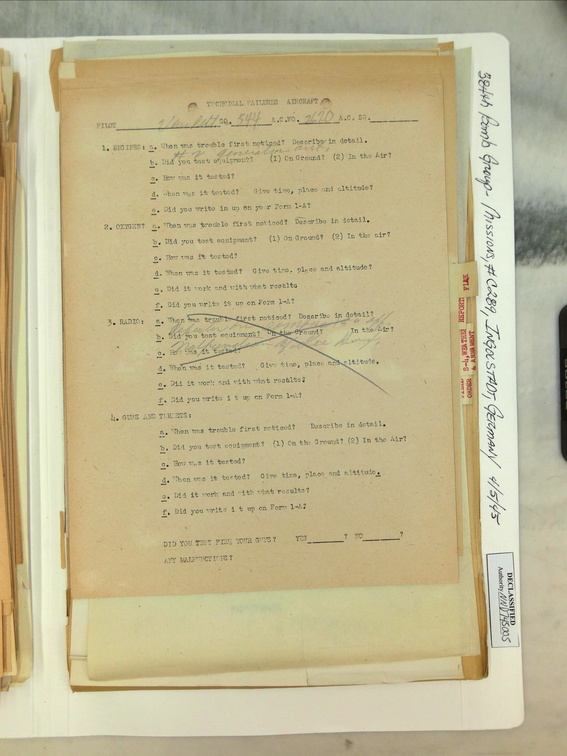 TECHNICAL FAILURES AIRCRAFT
PILOT SQ. 544 A.C.NO. 2620 A.C. SR.
1. ENGINES: a. When was trouble first noticed? Describe in detail.
# 2 generator out,
b. Did you test equipment? (1) On Ground? (2) In the Air?
c. How was it tested?
d. When was it tested? Give time, place and altitude?
e. Did you write in up on your Form 1-A?
2. OXYGEN: a. When was trouble first noticed? Describe in detail.
b. Did you test equipment? (1) On Ground? (2) In the air?
c. How was it tested?
d. When was it tested? Give time, place and altitude?
e. Did it work and with what results
f. Did you write it up on Form 1-A?
3. RADIO: a. When was trouble first noticed? Describe in detail?
b. Did you test equipment? On the Ground? In the Air?
c. How was it tested?
d. When was it tested? Give time, place and altitude.
e. Did it work and with what results?
f. Did you write i t up on Form 1-A?
4. GUNS AND TURRETS:
a. When was trouble first noticed? Describe in detail.
b. Did you test equipment? (1) On the Ground? (2) In the Air?
c. How was it tested?
d. When was it tested? Give time, place and altitude.
e. Did it work and with what results?
f. Did you write i t up on Form 1-A?
DID YOU TEST FIRE YOUR GUNS? YES ? NO ?
ANY MALFUNCTIONS?
S-2, WEATHER REPORT FLAK
ORDER & ARMAMENT
384th Bomb Group - Missions, # 289, INGOLSTADT, GERMANY 4/5/45
DECLASSIFIED
Authority NND 745005